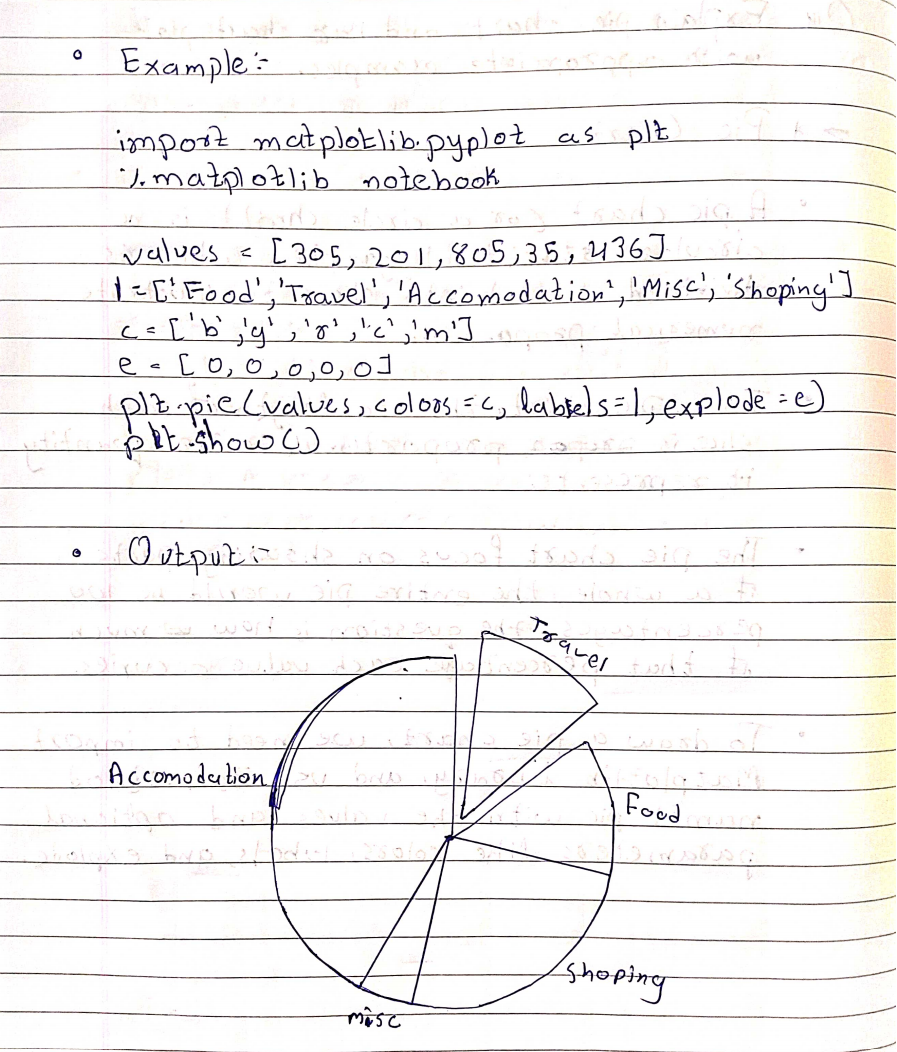 Example:-
import matplotlib.pyplot as plt
%matplotlib notebook
values = [305, 201, 805, 35, 436]
l = ['Food', 'Travel', 'Accomodation', 'Misc', 'Shoping']
c = ['b', 'g', 'r', 'c', 'm']
e = [0, 0, 0, 0, 0]
plt.pie(values, colors = c, labels = l, explode = e)
plt.show()
Output:-
Travel
Accomodation
Food
Shoping
misc